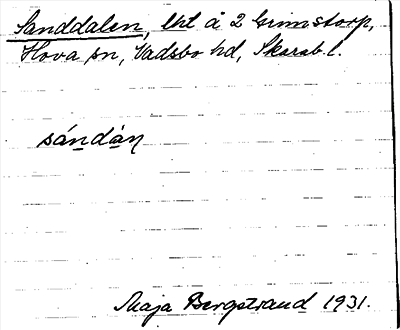 Sanddalen, lht å 2 Grimstorp,
Hova sn, Vadsbo hd, Skarab. l.
sándàn
Maja Bergstrand 1931.